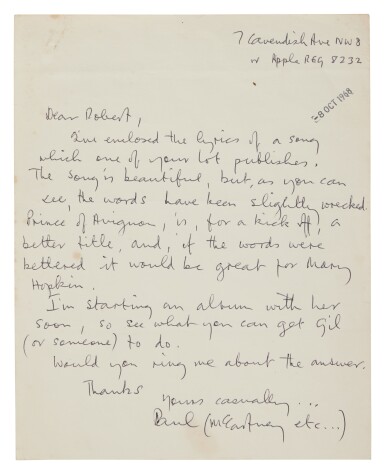 7 Cavendish Ave NW8
or Apple REG 8232
-8 OCT 1968
Dear Robert,
I've enclosed the lyrics of a song
which one of your lot publishes.
The song is beautiful, but, as you can
see, the words have been slightly wrecked.
Prince of Avignon, is, for a kick off, a
better title, and, if the words were
bettered it would be great for Mary
Hopkin.
I'm starting an album with her
soon, so see what you can get Gil
(or someone) to do.
Would you ring me about the answer.
Thanks
Yours casually...
Paul (McCartney etc...)